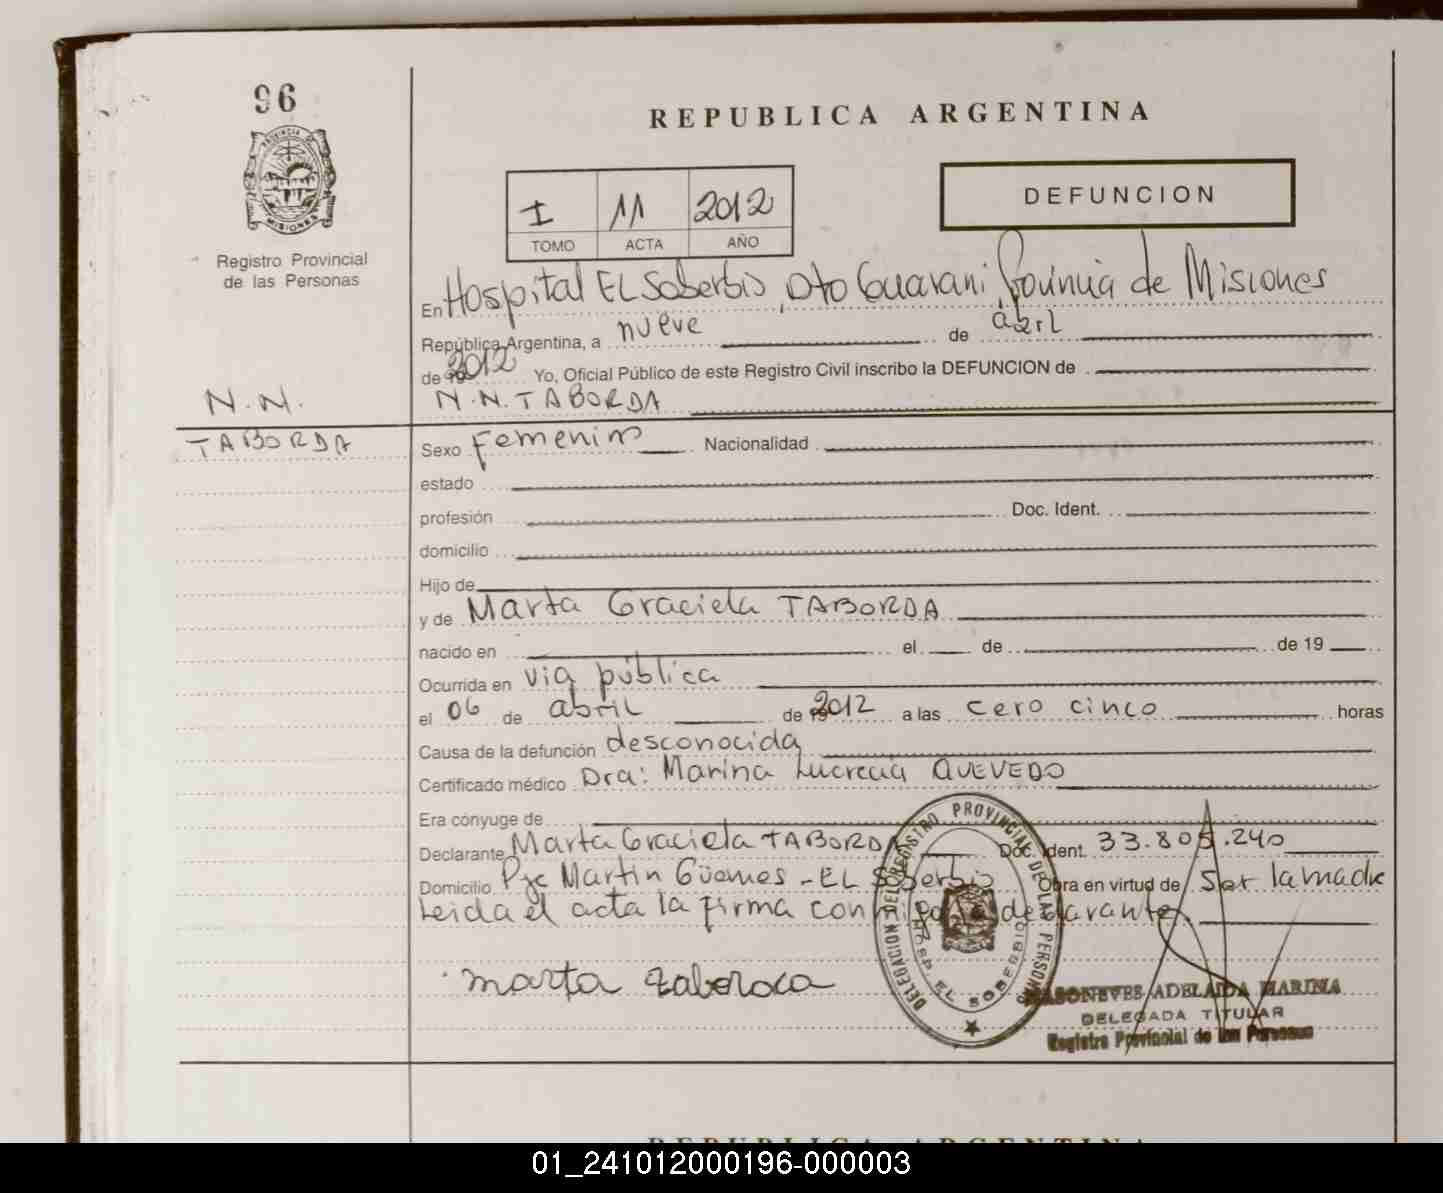 96
REPUBLICA ARGENTINA
PROVINCIA DE
MISIONES
Registro Provincial
de las Personas
I 11 2012
TOMO ACTA AÑO
DEFUNCION
En Hospital EL Soberbio, Dto Guarani, Provincia de Misiones
República Argentina, a nueve de abril
de 2012 Yo, Oficial Público de este Registro Civil inscribo la DEFUNCION de
N.N. N.N. TABORDA
TABORDA Sexo Femenino Nacionalidad
estado
profesión Doc. Ident.
domicilio
Hijo de
y de Marta Graciela TABORDA
nacido en el de de 19
Ocurrida en via pública
el 06 de abril de 2012 a las cero cinco horas
Causa de la defunción desconocida
Certificado médico Dra: Marina Lucrecia QUEVEDO
Era cónyuge de
Declarante Marta Graciela TABORDA Doc. Ident. 33.805.240
Domicilio Pje Martin Güemes - EL Soberbio Obra en virtud de Ser la madre
Leida el acta la firma conmigo la declarante.
marta taboroca
DELEGACION DEL REGISTRO PROVINCIAL DE LAS PERSONAS
HOSP EL SOBERBIO
ADELAIDA MARINA
DELEGADA TITULAR
Registro Provincial de las Personas
REPUBLICA ARGENTINA
01_241012000196-000003